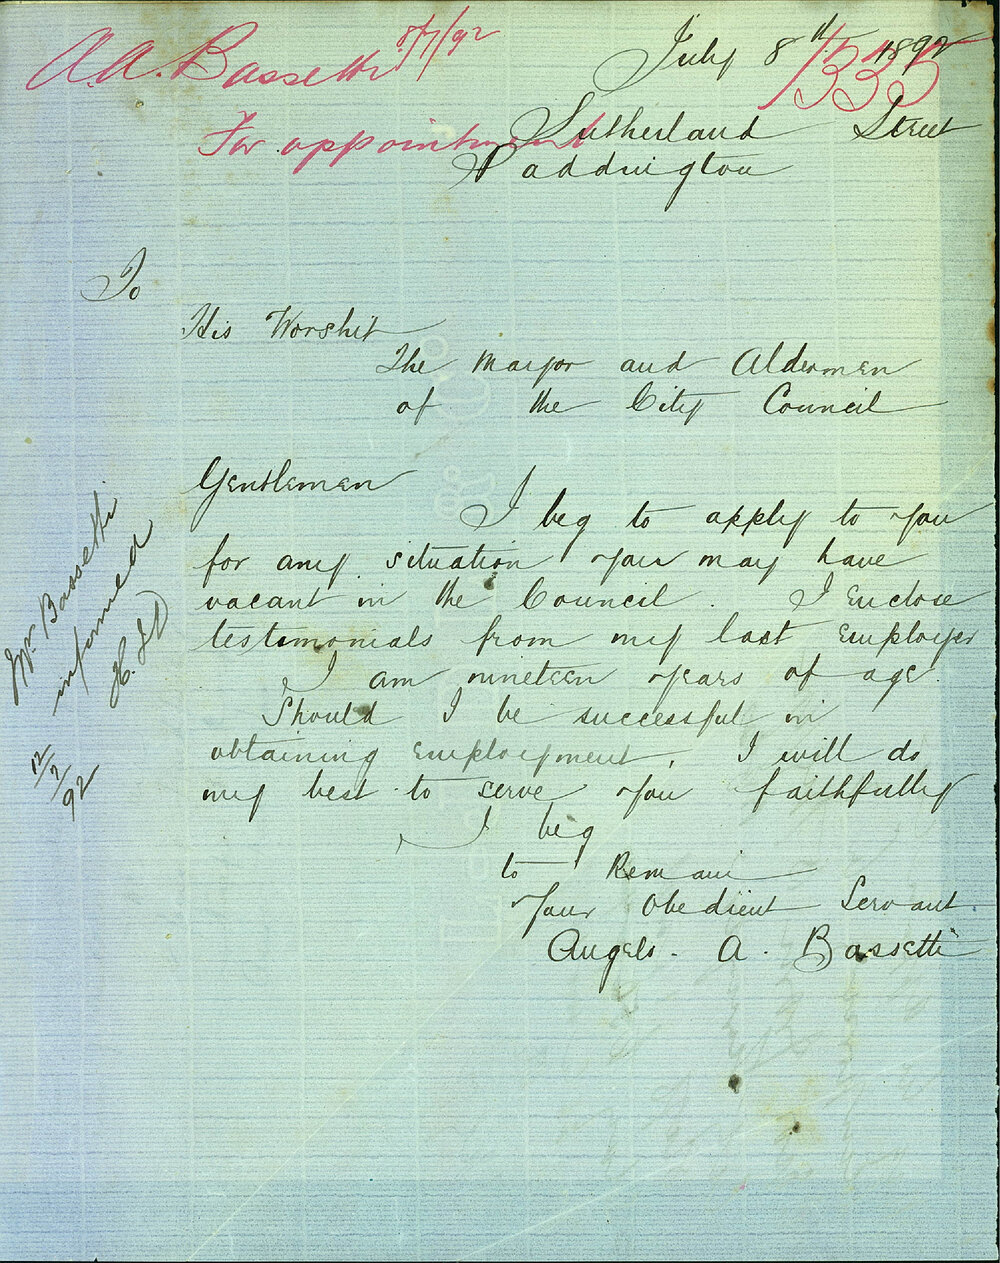 A.A. Bassetti 8/7/92
For appointment
1335
July 8th 1892
Sutherland Street
Paddington
To
His Worshit
The Mayor and Aldermen
of the City Council
Gentlemen
I beg to apply to you
for any situation you may have
vacant in the Council. I Enclose
testimonials from my last Employer
I am nineteen years of age.
Should I be successful in
obtaining Employment, I will do
my best to serve you faithfully
I beg
to Remain
Your Obedient Servant.
Angelo. A. Bassetti
Mr Bassetti
informed
12/7/92